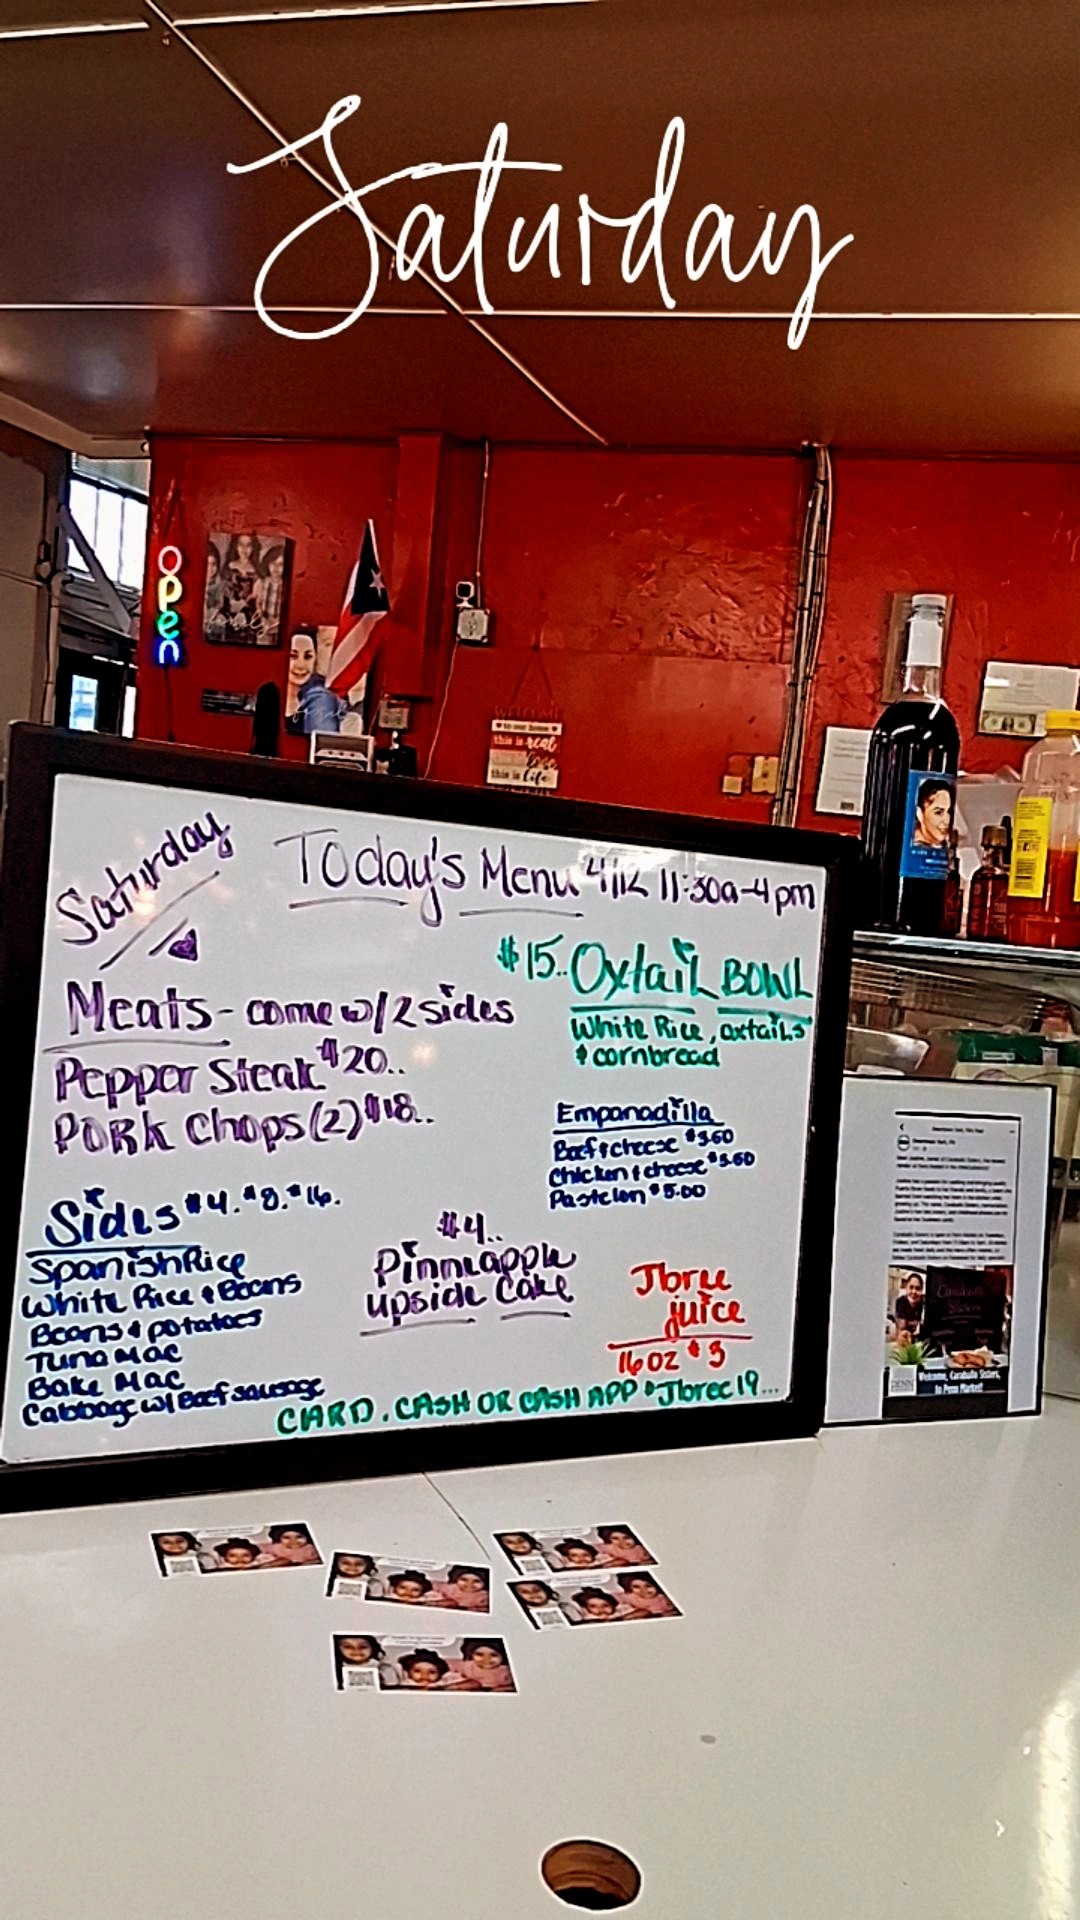 Saturday
open
family
this is real
love
this is life
Saturday
Today's Menu 4/12 11:30a-4pm
$15.. Oxtail BOWL
White Rice, oxtails
& cornbread
Meats - come w/2 sides
Pepper Steak $20..
PORK Chops (2) $18..
Empanadilla
Beef & cheese $3.60
Chicken & cheese $3.60
Pastelon $5.00
Sides $4. $8. $16.
Spanish Rice
White Rice & Beans
Beans & potatoes
Tuna Mac
Bake Mac
Cabbage w/ Beef sausage
$4..
Pinneapple
upside Cake
Jbree
juice
16oz $3
CARD, CASH OR CASH APP $Jbree19...
Welcome, Caraballo Sisters,
to Penn Market!